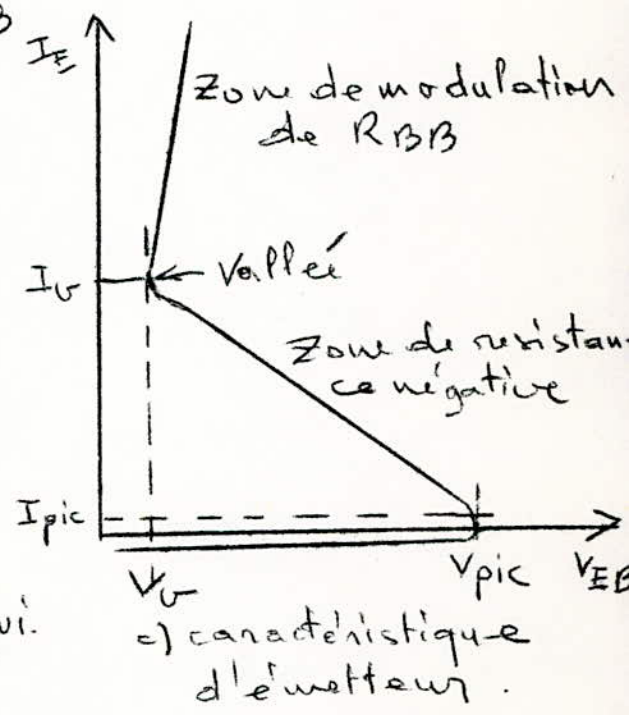 B
I_E
Zone de modulation
de RBB
I_v
Vallée
Zone de résistan-
ce négative
I_pic
V_v
V_pic
V_EB
ui.
c) caractéristique
d'émetteur.